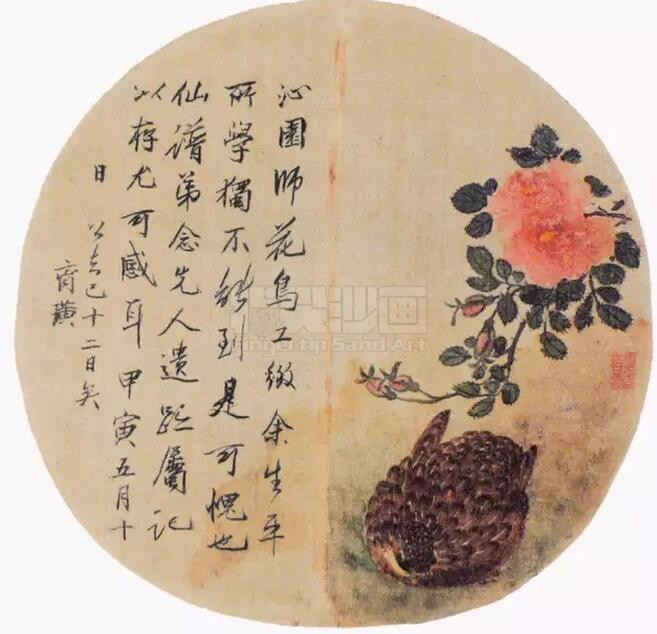 沁園師花鳥工緻余生平
所學獨不能到是可愧也
仙譜弟念先人遺跡屬記
以存尤可感耳甲寅五月十
日 公去已十二日矣
齊璜
指尖沙画
Fingertip Sand Art